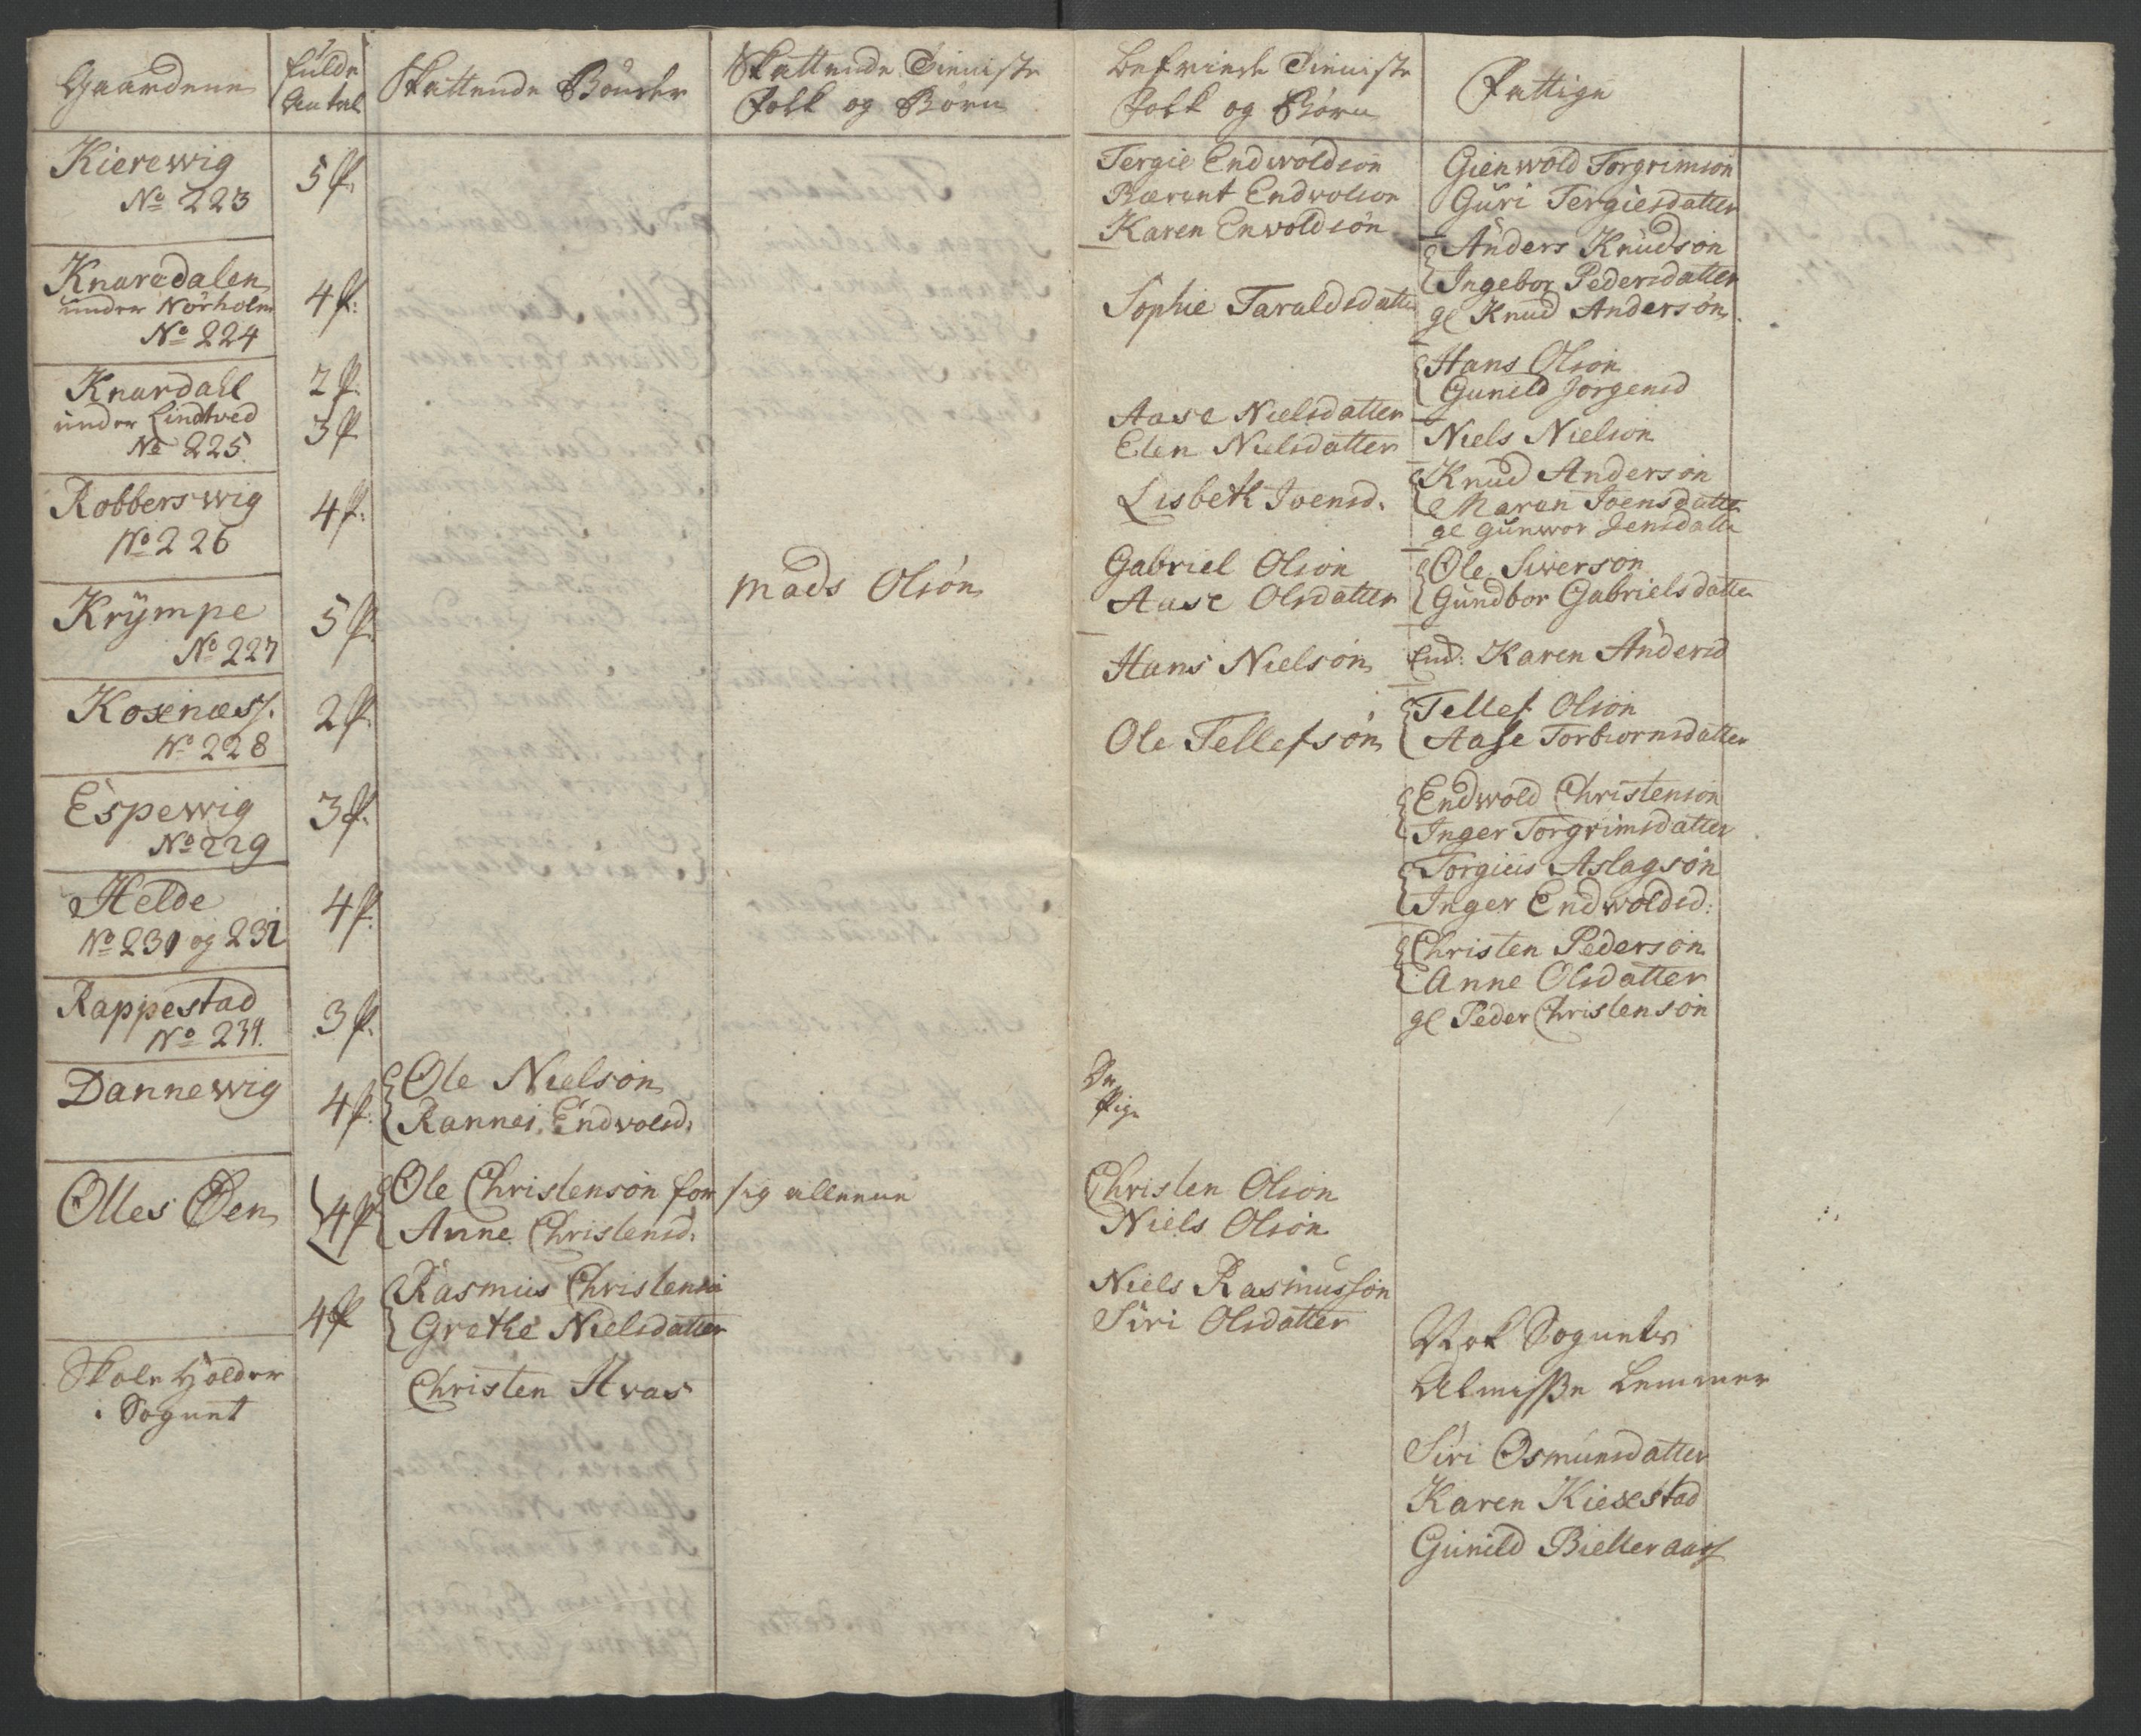 Gaardene
fulde Antal
Skattende Bönder
Skattende Tieniste
Folk og Børn
befriede Tieniste
Folk og Börn
Fattige
Kierewig
No 223
5 f.
Tergie Endwoldsøn
Bærent Endvolson
Karen Enwoldsøn
Gienwold Torgrimsøn
Guri Tergiesdatter
Knaredalen
under Nörholm
No 224
4 f:
Sophie Taraldsdatter
Anders Knudsøn
Ingebor Pedersdatter
gl Knud Andersøn
Knardall
under Lindtved
No 225.
2 f.
3 f.
Aase Nielsdatter
Elen Nielsdatter
Hans Olsøn
Gunild Jorgensd
Niels Nielsøn
Robberswig
No 226
4 f.
Lisbeth Joensd.
Knud Andersøn
Maran Joensdatter
gl Gunwor Jensdatter
Krÿmpe
No 227
5 f.
Mads Olsøn
Gabriel Olsøn
Aase Olsdatter
Ole Siversøn
Gundbor Gabrielsdatter
Hans Nielsøn
End: Karen Andersd
Kosenæss.
No 228
2 f.
Ole Tellefsøn
Tellef Olsøn
Aase Torbiornsdatter
Espewig
No 229
3 f.
Endwold Christensøn
Inger Torgrimsdatter
Helde
No 230 og 231
4 f.
Torgieis Aslagsøn
Inger Endwoldsd:
Rappestad
No 234.
3 f.
Christen Pedersøn
Anne Olsdatter
gl Peder Christensøn
Dannewig
4 f.
Ole Nielsøn
Rannei Endvolsd.
Olles Øen
4 f
Ole Christensøn for sig alleene
Anne Christensd.
Christen Olsøn
Niels Olsøn
4 f
Rasmus Christensø
Grethe Nielsdatter
Niels Rasmussøn
Siri Olsdatter
Skole Holder
i Sognet
Christen Hvas
Nok Sognets
Almisse Lemmer
Siri Osmunsdatter
Karen Kiexestad
Gunild Bielleraas